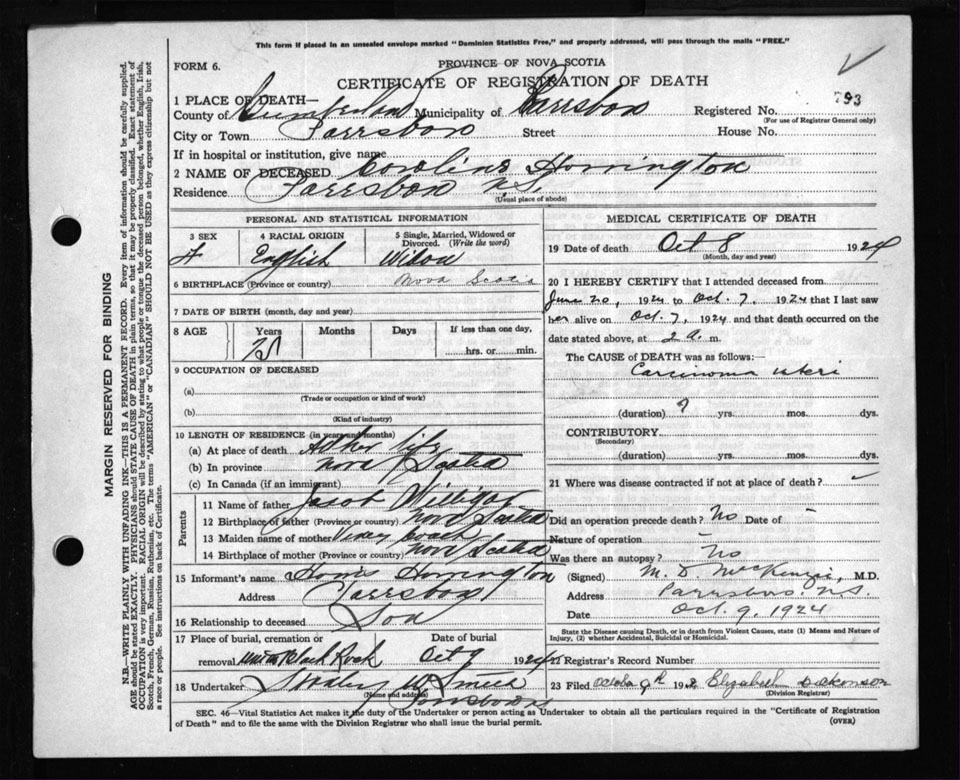 This form if placed in an unsealed envelope marked "Dominion Statistics Free," and properly addressed, will pass through the mails "FREE."
FORM 6.
PROVINCE OF NOVA SCOTIA
CERTIFICATE OF REGISTRATION OF DEATH
793
1 PLACE OF DEATH—
County of Cumberland Municipality of Parrsboro Registered No.
(For use of Registrar General only)
City or Town Parrsboro Street House No.
If in hospital or institution, give name
2 NAME OF DECEASED Caroline Harrington
Residence Parrsboro N.S.
(Usual place of abode)
PERSONAL AND STATISTICAL INFORMATION
3 SEX 4 RACIAL ORIGIN 5 Single, Married, Widowed or Divorced. (Write the word)
F English Widow
6 BIRTHPLACE (Province or country) Nova Scotia
7 DATE OF BIRTH (month, day and year)
8 AGE Years Months Days If less than one day,
75 ......hrs. or......min.
9 OCCUPATION OF DECEASED
(a)
(Trade or occupation or kind of work)
(b)
(Kind of industry)
10 LENGTH OF RESIDENCE (in years and months)
(a) At place of death life
(b) In province Nova Scotia
(c) In Canada (if an immigrant)
Parents
11 Name of father Jacob
12 Birthplace of father (Province or country) Nova Scotia
13 Maiden name of mother
14 Birthplace of mother (Province or country) Nova Scotia
15 Informant's name Harrington
Address Parrsboro
16 Relationship to deceased Son
17 Place of burial, cremation or removal Black Rock Date of burial Oct 9 1924
18 Undertaker Smith
(Name and address)
Parrsboro
MEDICAL CERTIFICATE OF DEATH
19 Date of death Oct 8 1924
(Month, day and year)
20 I HEREBY CERTIFY that I attended deceased from
June 20, 1924 to Oct. 7, 1924 that I last saw
her alive on Oct. 7, 1924 and that death occurred on the
date stated above, at 2 a. m.
The CAUSE of DEATH was as follows:—
Carcinoma uteri
(duration) ? yrs. mos. dys.
CONTRIBUTORY
(Secondary)
(duration) yrs. mos. dys.
21 Where was disease contracted if not at place of death?
Did an operation precede death? No Date of -
Nature of operation -
Was there an autopsy? No
(Signed) M. D. McKenzie, M.D.
Address Parrsboro N.S.
Date Oct. 9, 1924
State the Disease causing Death, or in death from Violent Causes, state (1) Means and Nature of Injury, (2) whether Accidental, Suicidal or Homicidal.
22 Registrar's Record Number
23 Filed October 9th 192 Elizabeth Dickenson
(Division Registrar)
SEC. 46—Vital Statistics Act makes it the duty of the Undertaker or person acting as Undertaker to obtain all the particulars required in the "Certificate of Registration of Death" and to file the same with the Division Registrar who shall issue the burial permit.
(OVER)
MARGIN RESERVED FOR BINDING
N.B.—WRITE PLAINLY WITH UNFADING INK—THIS IS A PERMANENT RECORD. Every item of information should be carefully supplied.
AGE should be stated EXACTLY. PHYSICIANS should STATE CAUSE OF DEATH in plain terms, so that it may be properly classified. Exact statement of
OCCUPATION is very important. RACIAL ORIGIN will be described by stating to what people or tongue the deceased person belonged, whether English, Irish,
Scotch, French, German, Russian, Ruthenian, etc. The terms "AMERICAN" or "CANADIAN" SHOULD NOT BE USED as they express citizenship but not
a race or people. See instructions on back of Certificate.